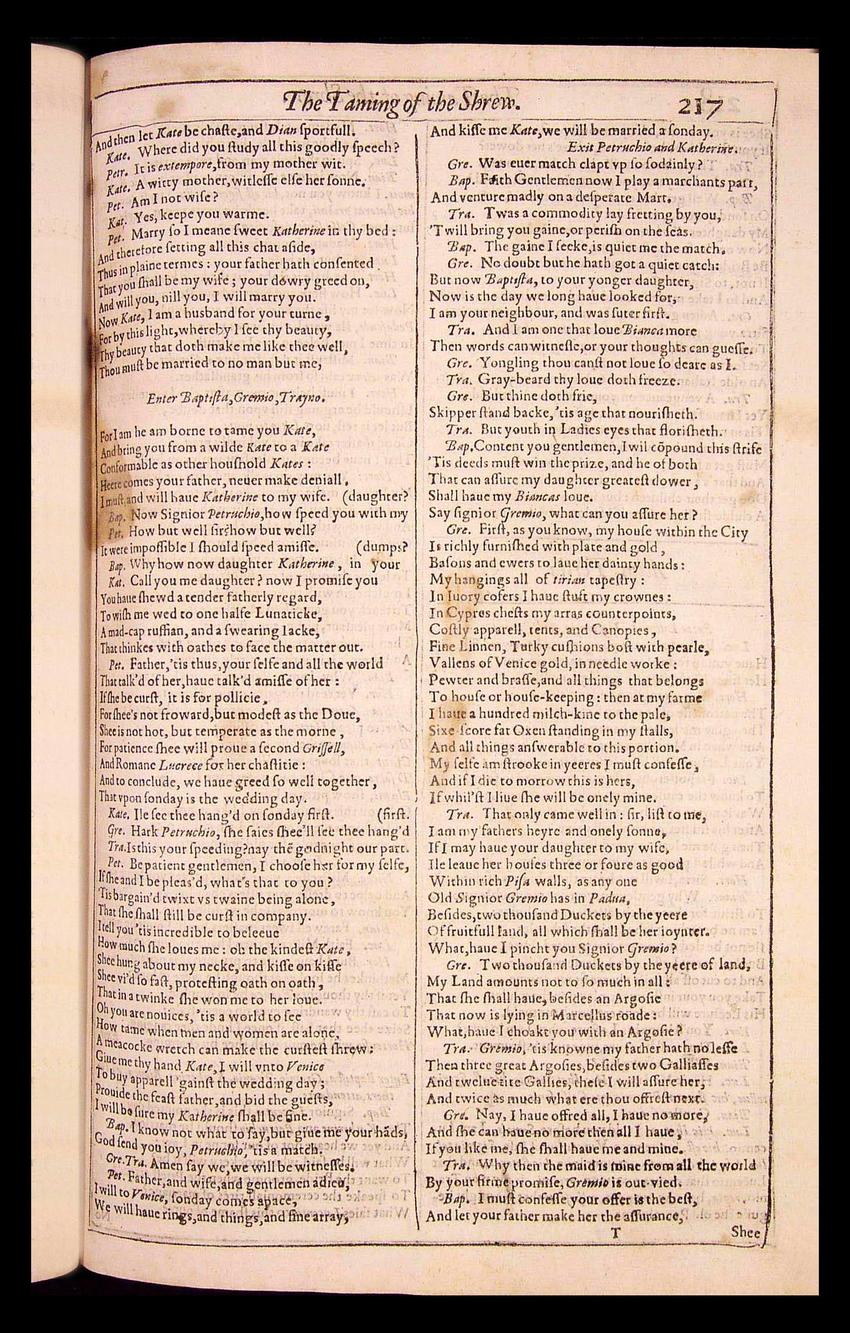 The Taming of the Shrew. 217
And then let Kate be chaſte, and Dian ſportfull.
Kate. Where did you ſtudy all this goodly ſpeech?
Petr. It is extempore, from my mother wit.
Kate. A witty mother, witleſſe elſe her ſonne.
Pet. Am I not wiſe?
Kat. Yes, keepe you warme.
Pet. Marry ſo I meane ſweet Katherine in thy bed:
And therefore ſetting all this chat aſide,
Thus in plaine termes: your father hath conſented
That you ſhall be my wife; your dowry greed on,
And will you, nill you, I will marry you.
Now Kate, I am a husband for your turne,
For by this light, whereby I ſee thy beauty,
Thy beauty that doth make me like thee well,
Thou muſt be married to no man but me,
Enter Baptiſta, Gremio, Trayno.
For I am he am borne to tame you Kate,
And bring you from a wilde Kate to a Kate
Conformable as other houſhold Kates:
Heere comes your father, neuer make deniall,
I muſt and will haue Katherine to my wife. (daughter?
Bap. Now Signior Petruchio, how ſpeed you with my
Pet. How but well ſir? how but well?
It were impoſſible I ſhould ſpeed amiſſe. (dumps?
Bap. Why how now daughter Katherine, in your
Kat. Call you me daughter? now I promiſe you
You haue ſhewd a tender fatherly regard,
To wiſh me wed to one halfe Lunaticke,
A mad-cap ruffian, and a ſwearing Iacke,
That thinkes with oathes to face the matter out.
Pet. Father, 'tis thus, your ſelfe and all the world
That talk'd of her, haue talk'd amiſſe of her:
If ſhe be curſt, it is for pollicie,
For ſhee's not froward, but modeſt as the Doue,
Shee is not hot, but temperate as the morne,
For patience ſhee will proue a ſecond Griſſell,
And Romane Lucrece for her chaſtitie:
And to conclude, we haue greed ſo well together,
That vpon ſonday is the wedding day.
Kate. Ile ſee thee hang'd on ſonday firſt. (firſt.
Gre. Hark Petruchio, ſhe ſaies ſhee'll ſee thee hang'd
Tra. Is this your ſpeeding? nay thē godnight our part.
Pet. Be patient gentlemen, I chooſe her for my ſelfe,
If ſhe and I be pleas'd, what's that to you?
'Tis bargain'd twixt vs twaine being alone,
That ſhe ſhall ſtill be curſt in company.
I tell you 'tis incredible to beleeue
How much ſhe loues me: oh the kindeſt Kate,
Shee hung about my necke, and kiſſe on kiſſe
Shee vi'd ſo faſt, proteſting oath on oath,
That in a twinke ſhe won me to her loue.
Oh you are nouices, 'tis a world to ſee
How tame when men and women are alone,
A meacocke wretch can make the curſteſt ſhrew:
Giue me thy hand Kate, I will vnto Venice
To buy apparell 'gainſt the wedding day;
Prouide the feaſt father, and bid the gueſts,
I will be ſure my Katherine ſhall be fine.
Bap. I know not what to ſay, but giue me your hāds,
God ſend you ioy, Petruchio, 'tis a match.
Gre. Tra. Amen ſay we, we will be witneſſes.
Pet. Father, and wife, and gentlemen adieu,
I will to Venice, ſonday comes apace,
We will haue rings, and things, and fine array,
And kiſſe me Kate, we will be married a ſonday.
Exit Petruchio and Katherine.
Gre. Was euer match clapt vp ſo ſodainly?
Bap. Faith Gentlemen now I play a marchants part,
And venture madly on a deſperate Mart.
Tra. Twas a commodity lay fretting by you,
'Twill bring you gaine, or periſh on the ſeas.
Bap. The gaine I ſeeke, is quiet me the match.
Gre. No doubt but he hath got a quiet catch:
But now Baptiſta, to your yonger daughter,
Now is the day we long haue looked for,
I am your neighbour, and was ſuter firſt.
Tra. And I am one that loue Bianca more
Then words can witneſſe, or your thoughts can gueſſe.
Gre. Yongling thou canſt not loue ſo deare as I.
Tra. Gray-beard thy loue doth freeze.
Gre. But thine doth frie,
Skipper ſtand backe, 'tis age that nouriſheth.
Tra. But youth in Ladies eyes that floriſheth.
Bap. Content you gentlemen, I wil cōpound this ſtrife
'Tis deeds muſt win the prize, and he of both
That can aſſure my daughter greateſt dower,
Shall haue my Biancas loue.
Say ſignior Gremio, what can you aſſure her?
Gre. Firſt, as you know, my houſe within the City
Is richly furniſhed with plate and gold,
Baſons and ewers to laue her dainty hands:
My hangings all of tirian tapeſtry:
In Iuory cofers I haue ſtuſt my crownes:
In Cypres cheſts my arras counterpoints,
Coſtly apparell, tents, and Canopies,
Fine Linnen, Turky cuſhions boſt with pearle,
Vallens of Venice gold, in needle worke:
Pewter and braſſe, and all things that belongs
To houſe or houſe-keeping: then at my farme
I haue a hundred milch-kine to the pale,
Sixe-ſcore fat Oxen ſtanding in my ſtalls,
And all things anſwerable to this portion.
My ſelfe am ſtrooke in yeeres I muſt confeſſe,
And if I die to morrow this is hers,
If whil'ſt I liue ſhe will be onely mine.
Tra. That only came well in: ſir, liſt to me,
I am my fathers heyre and onely ſonne,
If I may haue your daughter to my wife,
Ile leaue her houſes three or foure as good
Within rich Piſa walls, as any one
Old Signior Gremio has in Padua,
Beſides, two thouſand Duckets by the yeere
Of fruitfull land, all which ſhall be her ioynter.
What, haue I pincht you Signior Gremio?
Gre. Two thouſand Duckets by the yeere of land,
My Land amounts not to ſo much in all:
That ſhe ſhall haue, beſides an Argoſie
That now is lying in Marcellus roade:
What, haue I choakt you with an Argoſie?
Tra. Gremio, 'tis knowne my father hath no leſſe
Then three great Argoſies, beſides two Galliaſſes
And twelue tite Gallies, theſe I will aſſure her,
And twice as much what ere thou offreſt next.
Gre. Nay, I haue offred all, I haue no more,
And ſhe can haue no more then all I haue,
If you like me, ſhe ſhall haue me and mine.
Tra. Why then the maid is mine from all the world
By your firme promiſe, Gremio is out-vied.
Bap. I muſt confeſſe your offer is the beſt,
And let your father make her the aſſurance,
T Shee